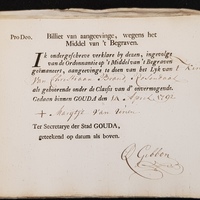 Pro Deo. Billiet van aangeevinge, wegens het
Middel van 't Begraven.
IK ondergeschreve verklare by dezen, ingevolge
van de Ordonnantie op 't Middel van 't Begraven
geëmaneert, aangeevinge te doen van het Lyk van
Van
als gehoorende onder de Classis van d' onvermogende.
Gedaan binnen GOUDA den April
+ Van
Ter Secretarye der Stad GOUDA,
geteekend op datum als boven.